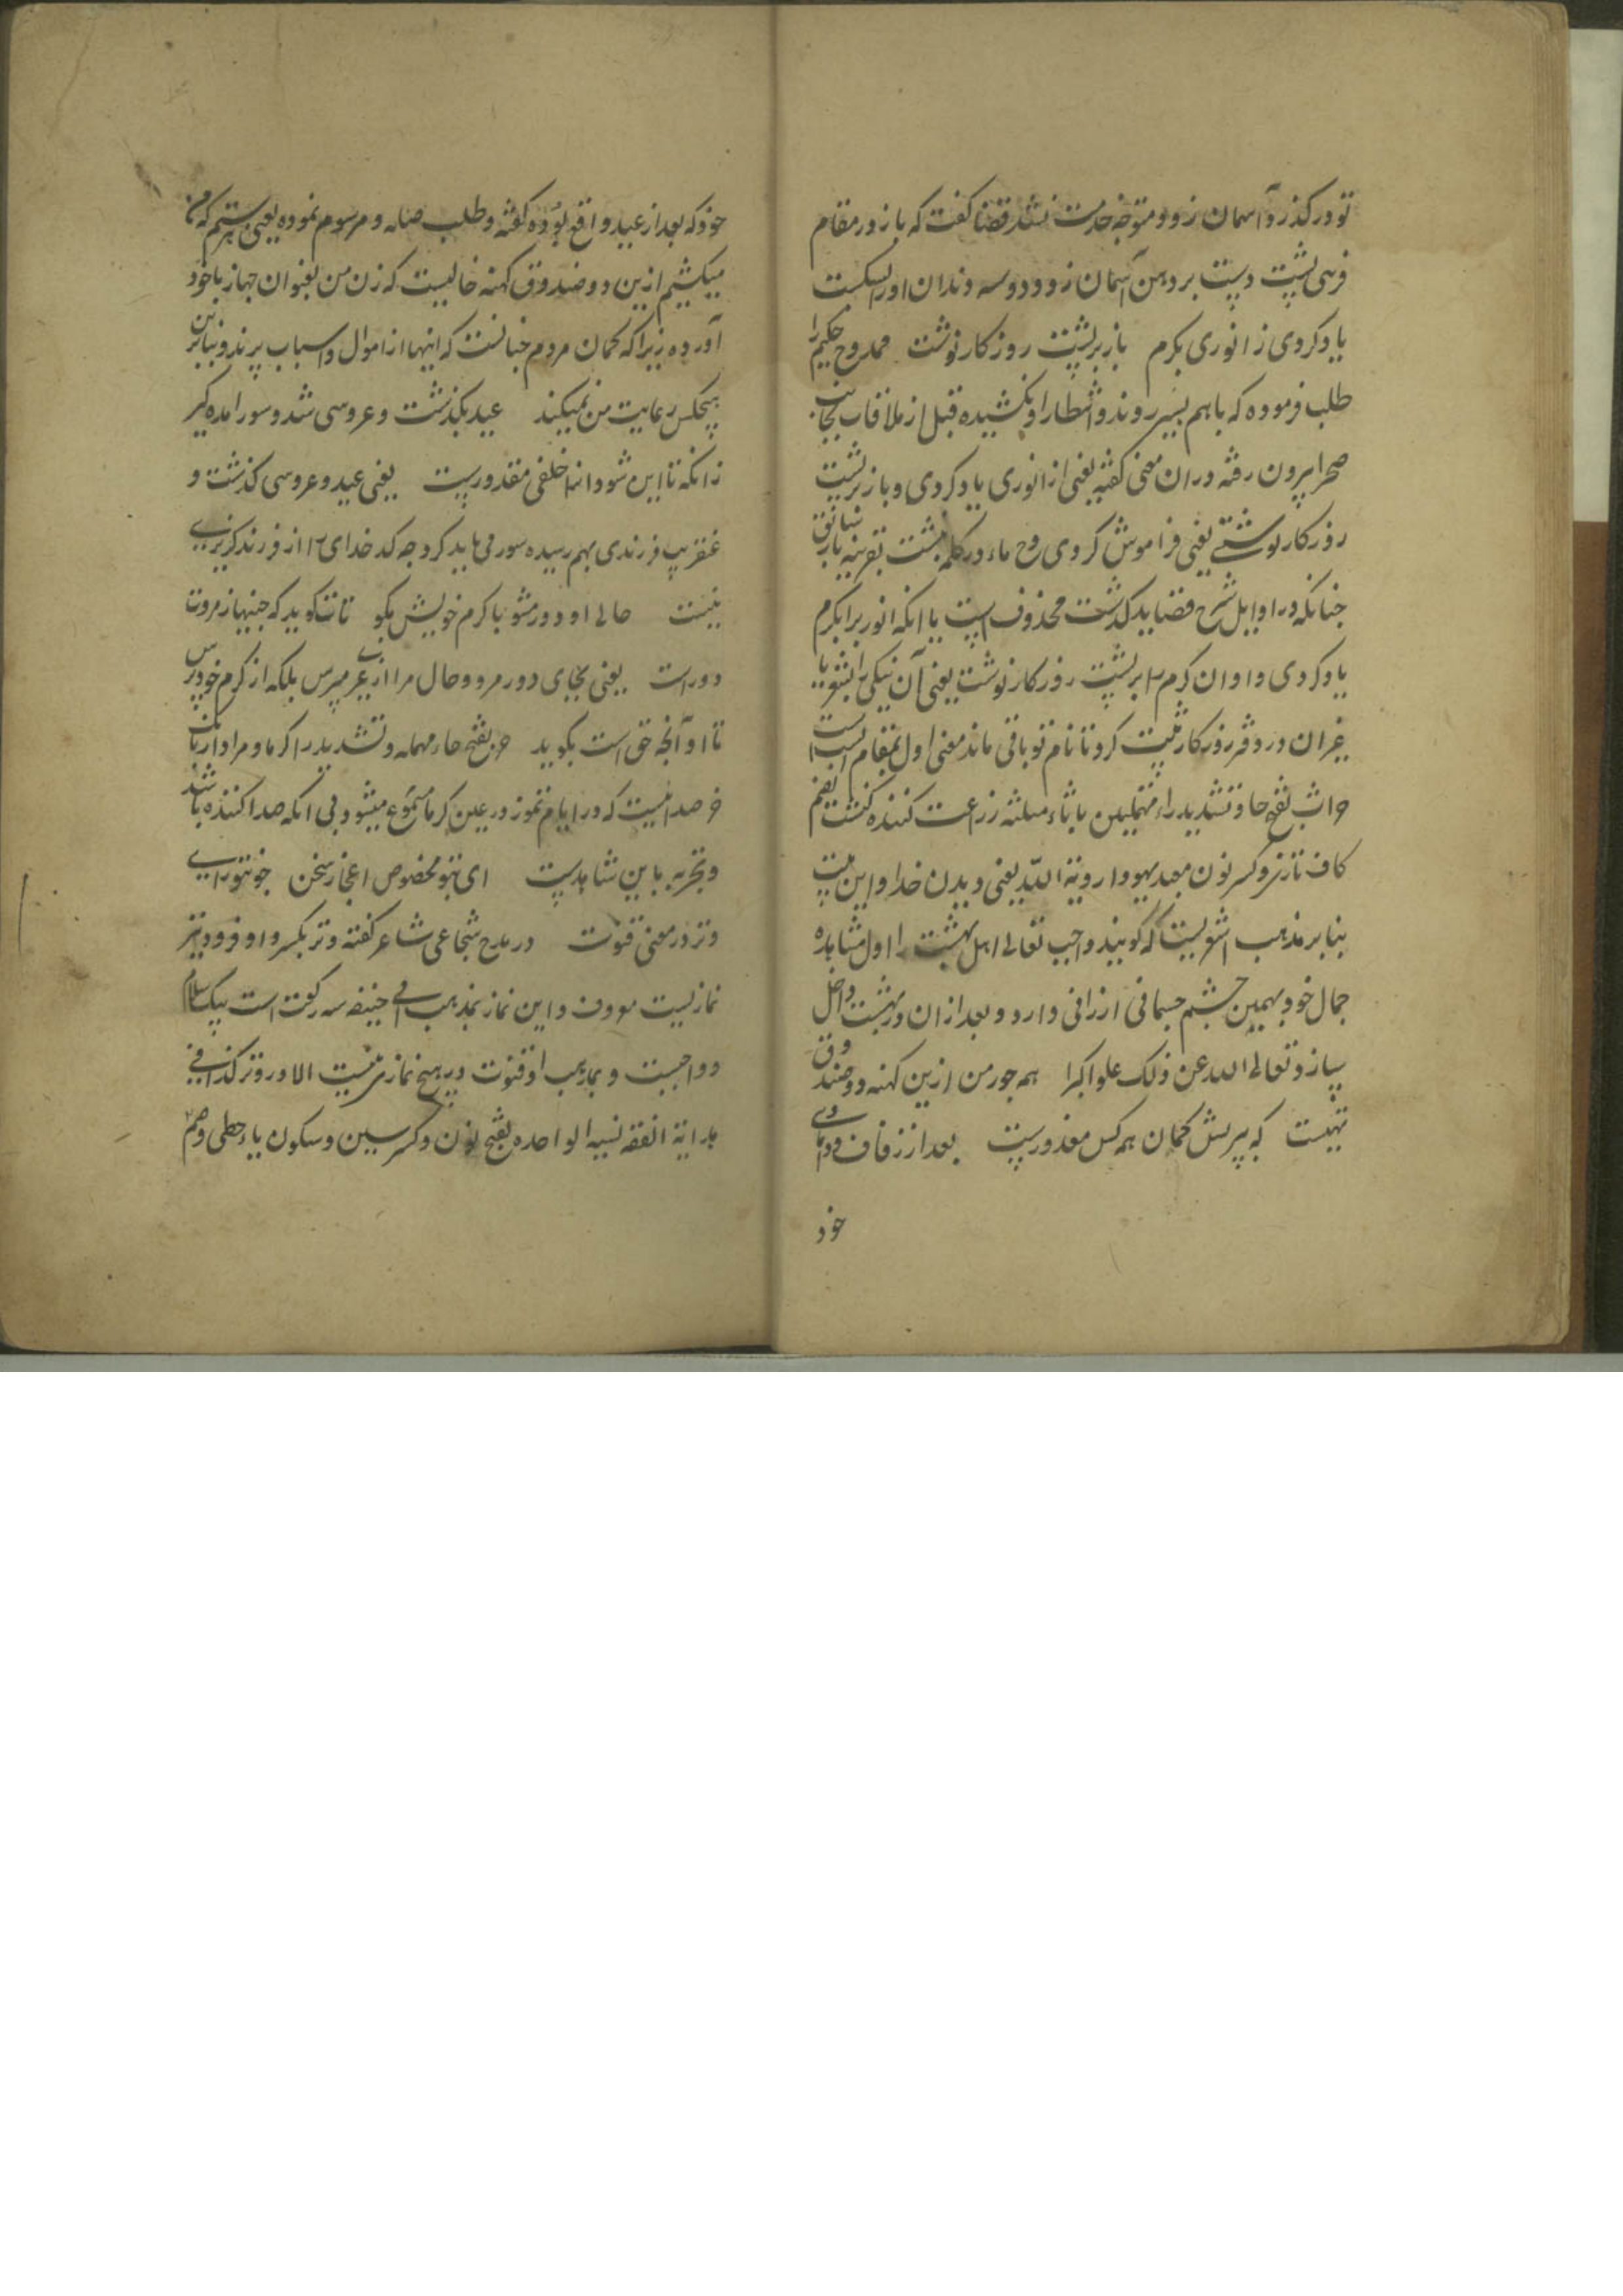 تو درکذرد آسمان زود متوجه خدمت نشد قضا کفت که باز در مقام
فرسی پشت دست بر دهن آسمان زد و دو سه دندان او را شکست
یاد کردی ز انوری بکرم باز بر پشت روزکار نوشت ممدوح حکیم را
طلب فرموده که باهم بسیر روند و انتظار او نکشیده قبل از ملاقات بجانب
صحرا بیرون رفته در ان معنی کفته یعنی از انوری یاد کردی و باز بر پشت
روزکار نوشتی یعنی فراموش کردی و ح باء در کلمه بشت بقرینه باء سابق
جنانکه در اوایل شرح قصاید کذشت محذوف است یا انکه انوری را بکرم
یاد کردی و او ان کرم را بر پشت روزکار نوشت یعنی آن نیکی را بشو یا
غیر ان در دفتر روزکار ثبت کرد تا نام تو باقی ماند معنی اول بمقام انسب است
حراث بفتح حا و تشدید راء مهملتین با ثاء مثلثه زراعت کننده کنشت بضم
کاف تازی و کسر نون معبد یهود رویة الله یعنی دیدن خدا و این بیت
بنا بر مذهب اشعریست که کویند واجب تعالی اهل بهشت را اول مشاهده
جمال خود بهمین جشم جسمانی ارزانی دارد و بعد از ان در بهشت داخل
سازد تعالی الله عن ذلک علوا کبرا همه جور من ازین کهنه دو صندوق
تهیست که پرسش کمان همه کس معذورست بعد از زفاف و دامادی
خود
خود که بعد از عید واقع بوده کفته و طلب صله و مرسوم نموده یعنی ستم که من
میکشم ازین دو صندوق کهنه خالیست که زن من بعنوان جهاز باخود
آورده زیرا که کمان مردم جنانست که اینها از اموال و اسباب پرند و بنابرین
هیچکس رعایت من نمیکند عید بکذشت و عروسی شد و سور امده کیر
زانکه تا این شود انرا خلفی مقدورست یعنی عید و عروسی کذشت و
عنقریب فرزندی بهم رسیده سور می باید کرد چه کدخدای را از فرزند کزیری
نیست حالی او دور مشو با کرم خویش بکو تات کوید که جنینها ز مروت
دورست یعنی بجای دور مرو و حال مرا از غیری مپرس بلکه از کرم خود پرس
تا او آنچه حق است بکوید حر بفتح حاء مهمله و تشدید را کرما و مراد از بانک
حر صدائیست که در ایام تموز در عین کرما مسموع میشود بی انکه صدا کننده باشد
و تجربه باین شاهدست ای بتو مخصوص اعجاز سخن چون بتو راء
وتر در معنی قنوت در مدح شجاعی شاعر کفته وتر بکسر واو فرد و نیز
نمازیست معروف و این نماز بمذهب ابی حنیفه سه رکعت است بیک سلام
و واجبست و بمذهب او قنوت در هیچ نماز نیست الا در وتر کذا فی
هدایة الفقه نسیه الواحده بفتح نون و کسر سین و سکون یاء حطی و ضم